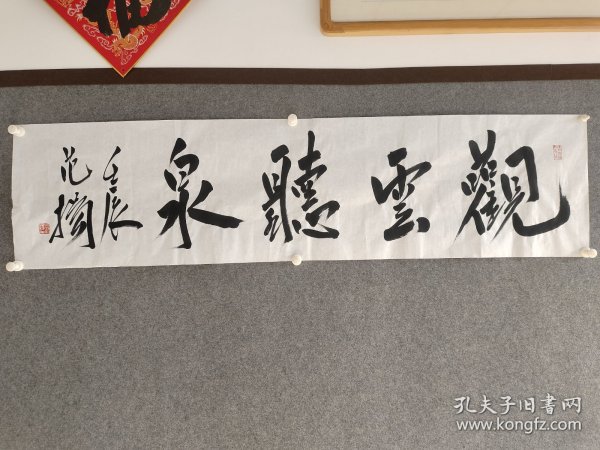 觀雲聽泉
壬辰
孔夫子旧书网
www.kongfz.com